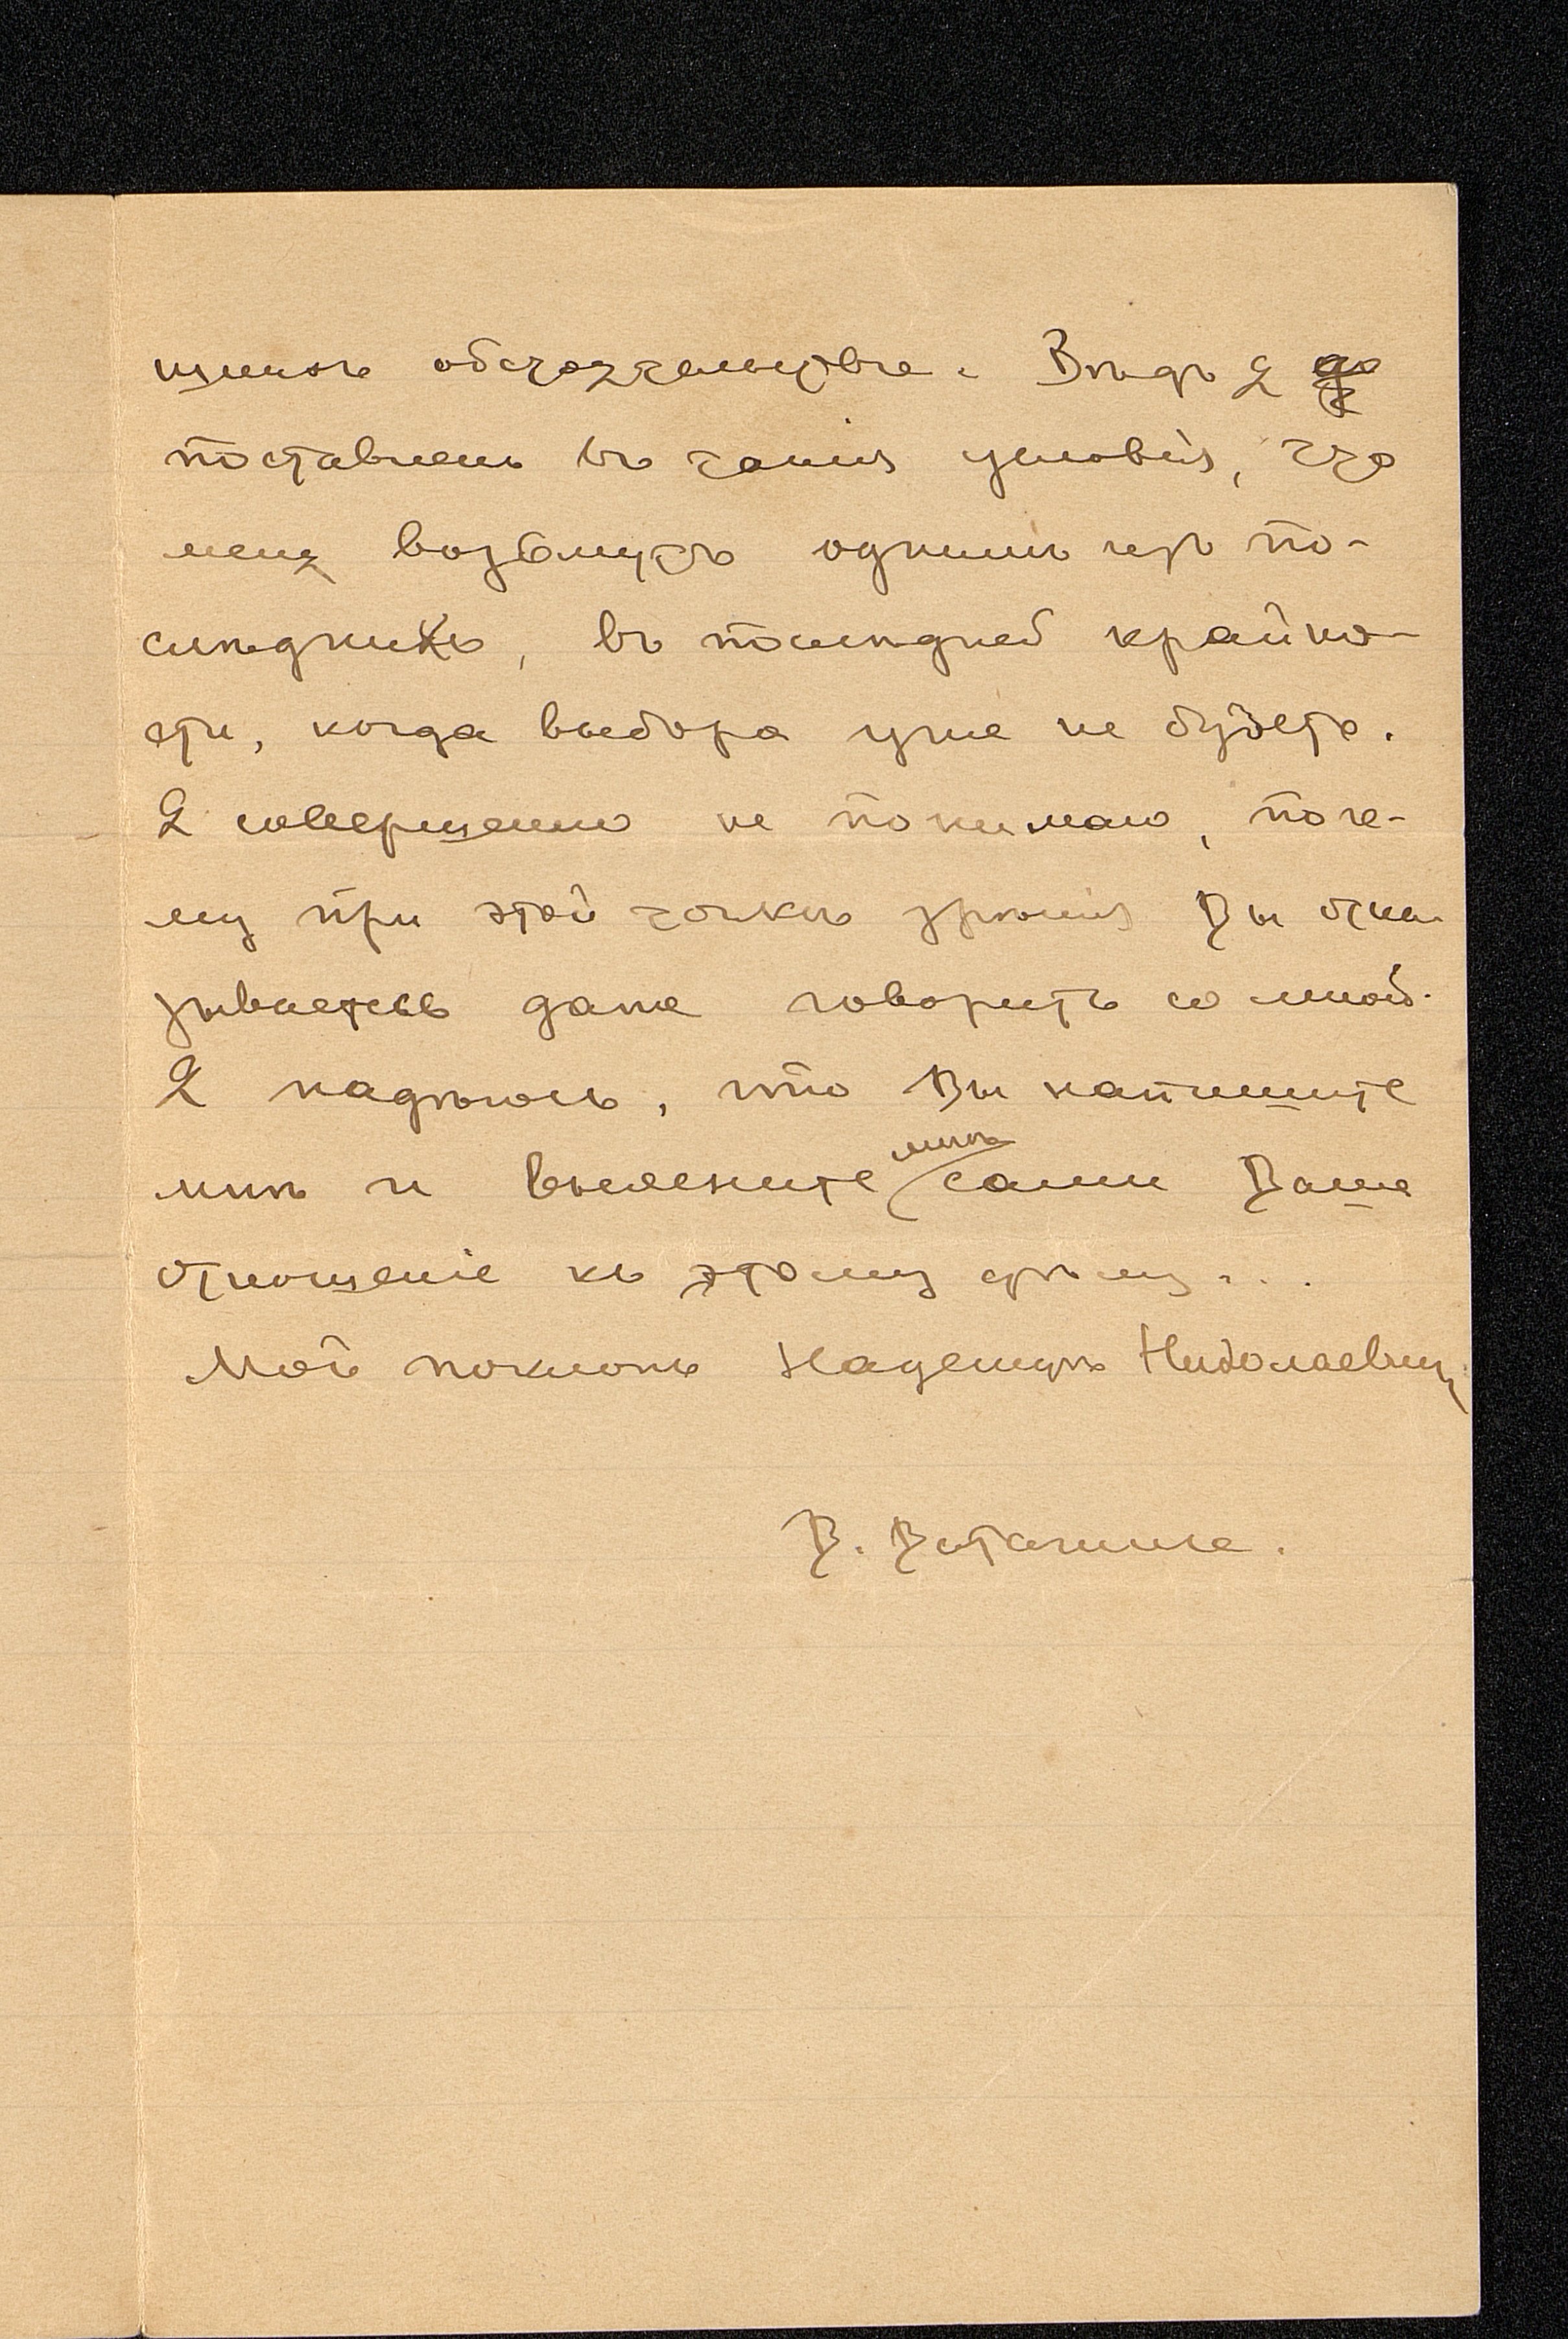 щихъ обстоятельствъ. Вѣдь я
поставленъ въ такія условія, что
меня возьмутъ однимъ изъ по-
слѣднихъ, въ послѣдней крайно-
сти, когда выбора уже не будетъ.
Я совершенно не понимаю, поче-
му при этой точкѣ зрѣнія Вы отка-
зываетесь даже говорить со мной.
Я надѣюсь, что Вы напишите
мнѣ и выясните сами Ваше
отношеніе къ этому
Мой поклонъ Надеждѣ Николаевнѣ.